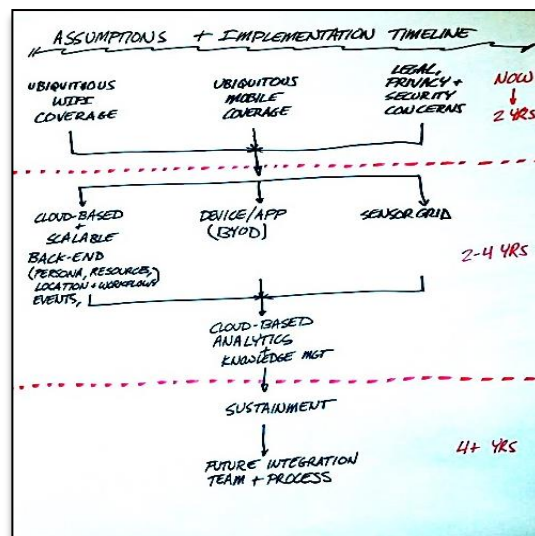 ASSUMPTIONS + IMPLEMENTATION TIMELINE
UBIQUITOUS
WIFI
COVERAGE
UBIQUITOUS
MOBILE
COVERAGE
LEGAL,
PRIVACY +
SECURITY
CONCERNS
NOW
2 YRS
CLOUD-BASED
+
SCALABLE
BACK-END
(PERSONA, RESOURCES,
LOCATION + WORKFLOWS
EVENTS,
DEVICE/APP
(BYOD)
SENSOR GRID
2-4 YRS
CLOUD-BASED
ANALYTICS
+
KNOWLEDGE MGT
SUSTAINMENT
FUTURE INTEGRATION
TEAM + PROCESS
4+ YRS